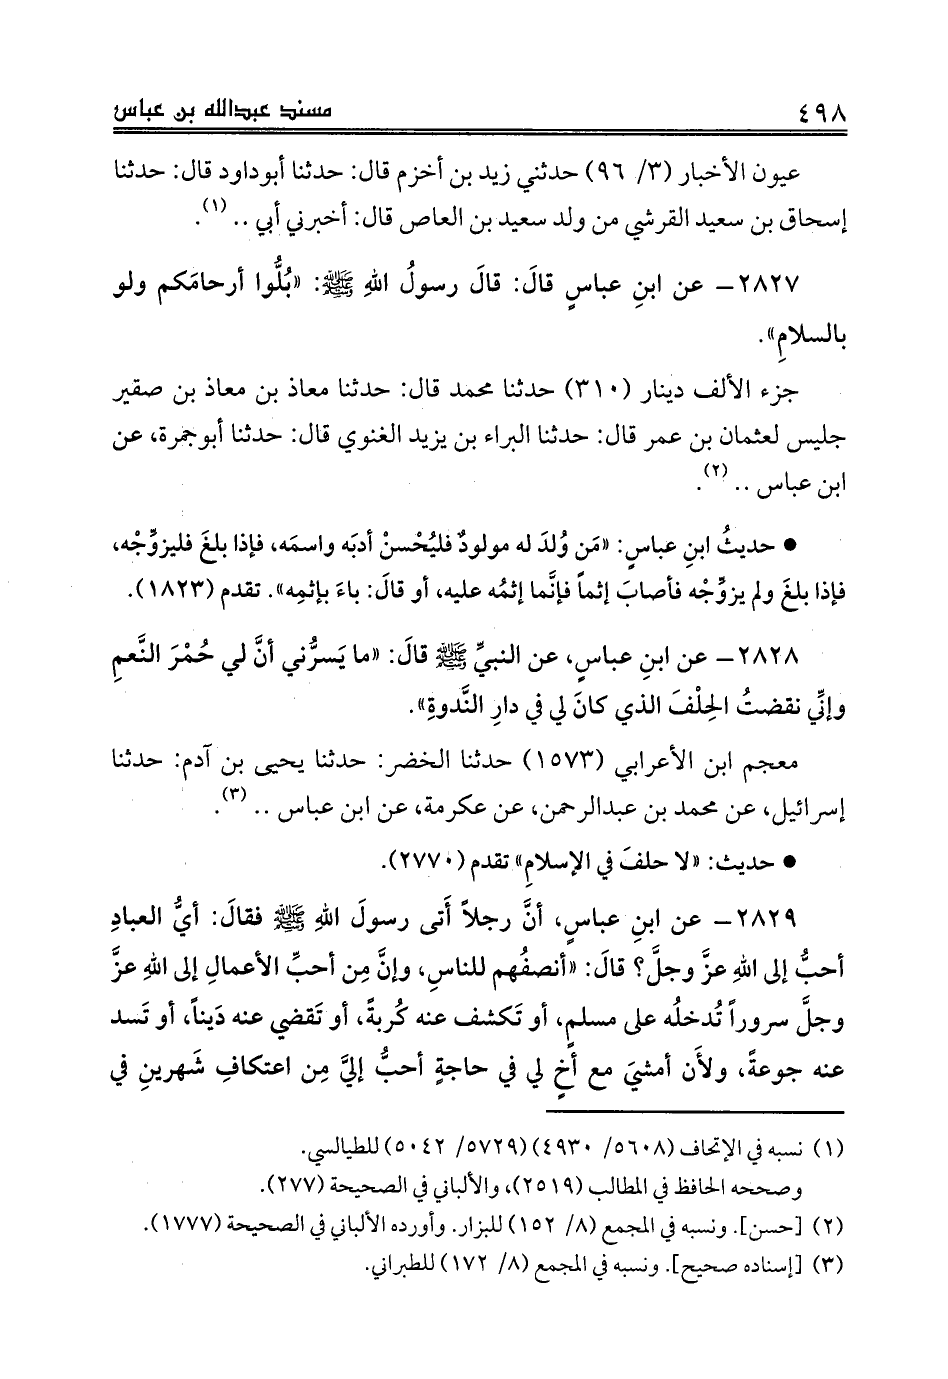 ٤٩٨ مسند عبدالله بن عباس
عيون الأخبار (٣/ ٩٦) حدثني زيد بن أخزم قال: حدثنا أبوداود قال: حدثنا
إسحاق بن سعيد القرشي من ولد سعيد بن العاص قال: أخبرني أبي .. (١).
٢٨٢٧ – عن ابنِ عباسٍ قالَ: قالَ رسولُ اللهِ ﷺ: «بُلُّوا أرحامَكم ولو
بالسلامِ».
جزء الألف دينار (٣١٠) حدثنا محمد قال: حدثنا معاذ بن معاذ بن صقير
جليس لعثمان بن عمر قال: حدثنا البراء بن يزيد الغنوي قال: حدثنا أبوجمرة، عن
ابن عباس .. (٢).
● حديثُ ابنِ عباسٍ: «مَن وُلدَ له مولودٌ فليُحْسنْ أدبَه واسمَه، فإذا بلغَ فليزوِّجْه،
فإذا بلغَ ولم يزوِّجْه فأصابَ إثماً فإنَّما إثمُه عليه، أو قالَ: باءَ بإثمِه». تقدم (١٨٢٣).
٢٨٢٨ – عن ابنِ عباسٍ، عن النبيِّ ﷺ قالَ: «ما يَسرُّني أنَّ لي حُمْرَ النَّعمِ
وإنِّي نقضتُ الحِلْفَ الذي كانَ لي في دارِ النَّدوةِ».
معجم ابن الأعرابي (١٥٧٣) حدثنا الخضر: حدثنا يحيى بن آدم: حدثنا
إسرائيل، عن محمد بن عبدالرحمن، عن عكرمة، عن ابن عباس .. (٣).
● حديث: «لا حلفَ في الإسلامِ» تقدم (٢٧٧٠).
٢٨٢٩ – عن ابنِ عباسٍ، أنَّ رجلاً أَتى رسولَ اللهِ ﷺ فقالَ: أيُّ العبادِ
أحبُّ إلى اللهِ عزَّ وجلَّ؟ قالَ: «أنصفُهم للناسِ، وإنَّ مِن أحبِّ الأعمالِ إلى اللهِ عزَّ
وجلَّ سروراً تُدخلُه على مسلمٍ، أو تَكشف عنه كُربةً، أو تَقضي عنه دَيناً، أو تَسد
عنه جوعةً، ولأَن أمشيَ مع أخٍ لي في حاجةٍ أحبُّ إليَّ مِن اعتكافِ شَهرينِ في
(١) نسبه في الإتحاف (٥٦٠٨/ ٤٩٣٠) (٥٧٢٩/ ٥٠٤٢) للطيالسي.
وصححه الحافظ في المطالب (٢٥١٩)، والألباني في الصحيحة (٢٧٧).
(٢) [حسن]. ونسبه في المجمع (٨/ ١٥٢) للبزار. وأورده الألباني في الصحيحة (١٧٧٧).
(٣) [إسناده صحيح]. ونسبه في المجمع (٨/ ١٧٢) للطبراني.